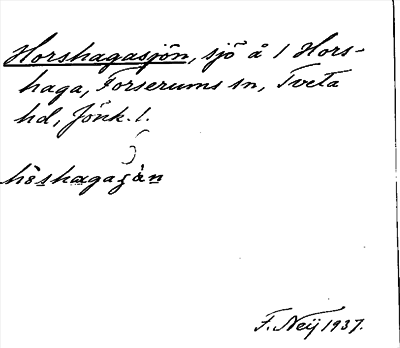 Horshagasjön, sjö å 1 Hors-
haga, Forserums sn, Tveta
hd, Jönk. l.
F. Neij 1937.